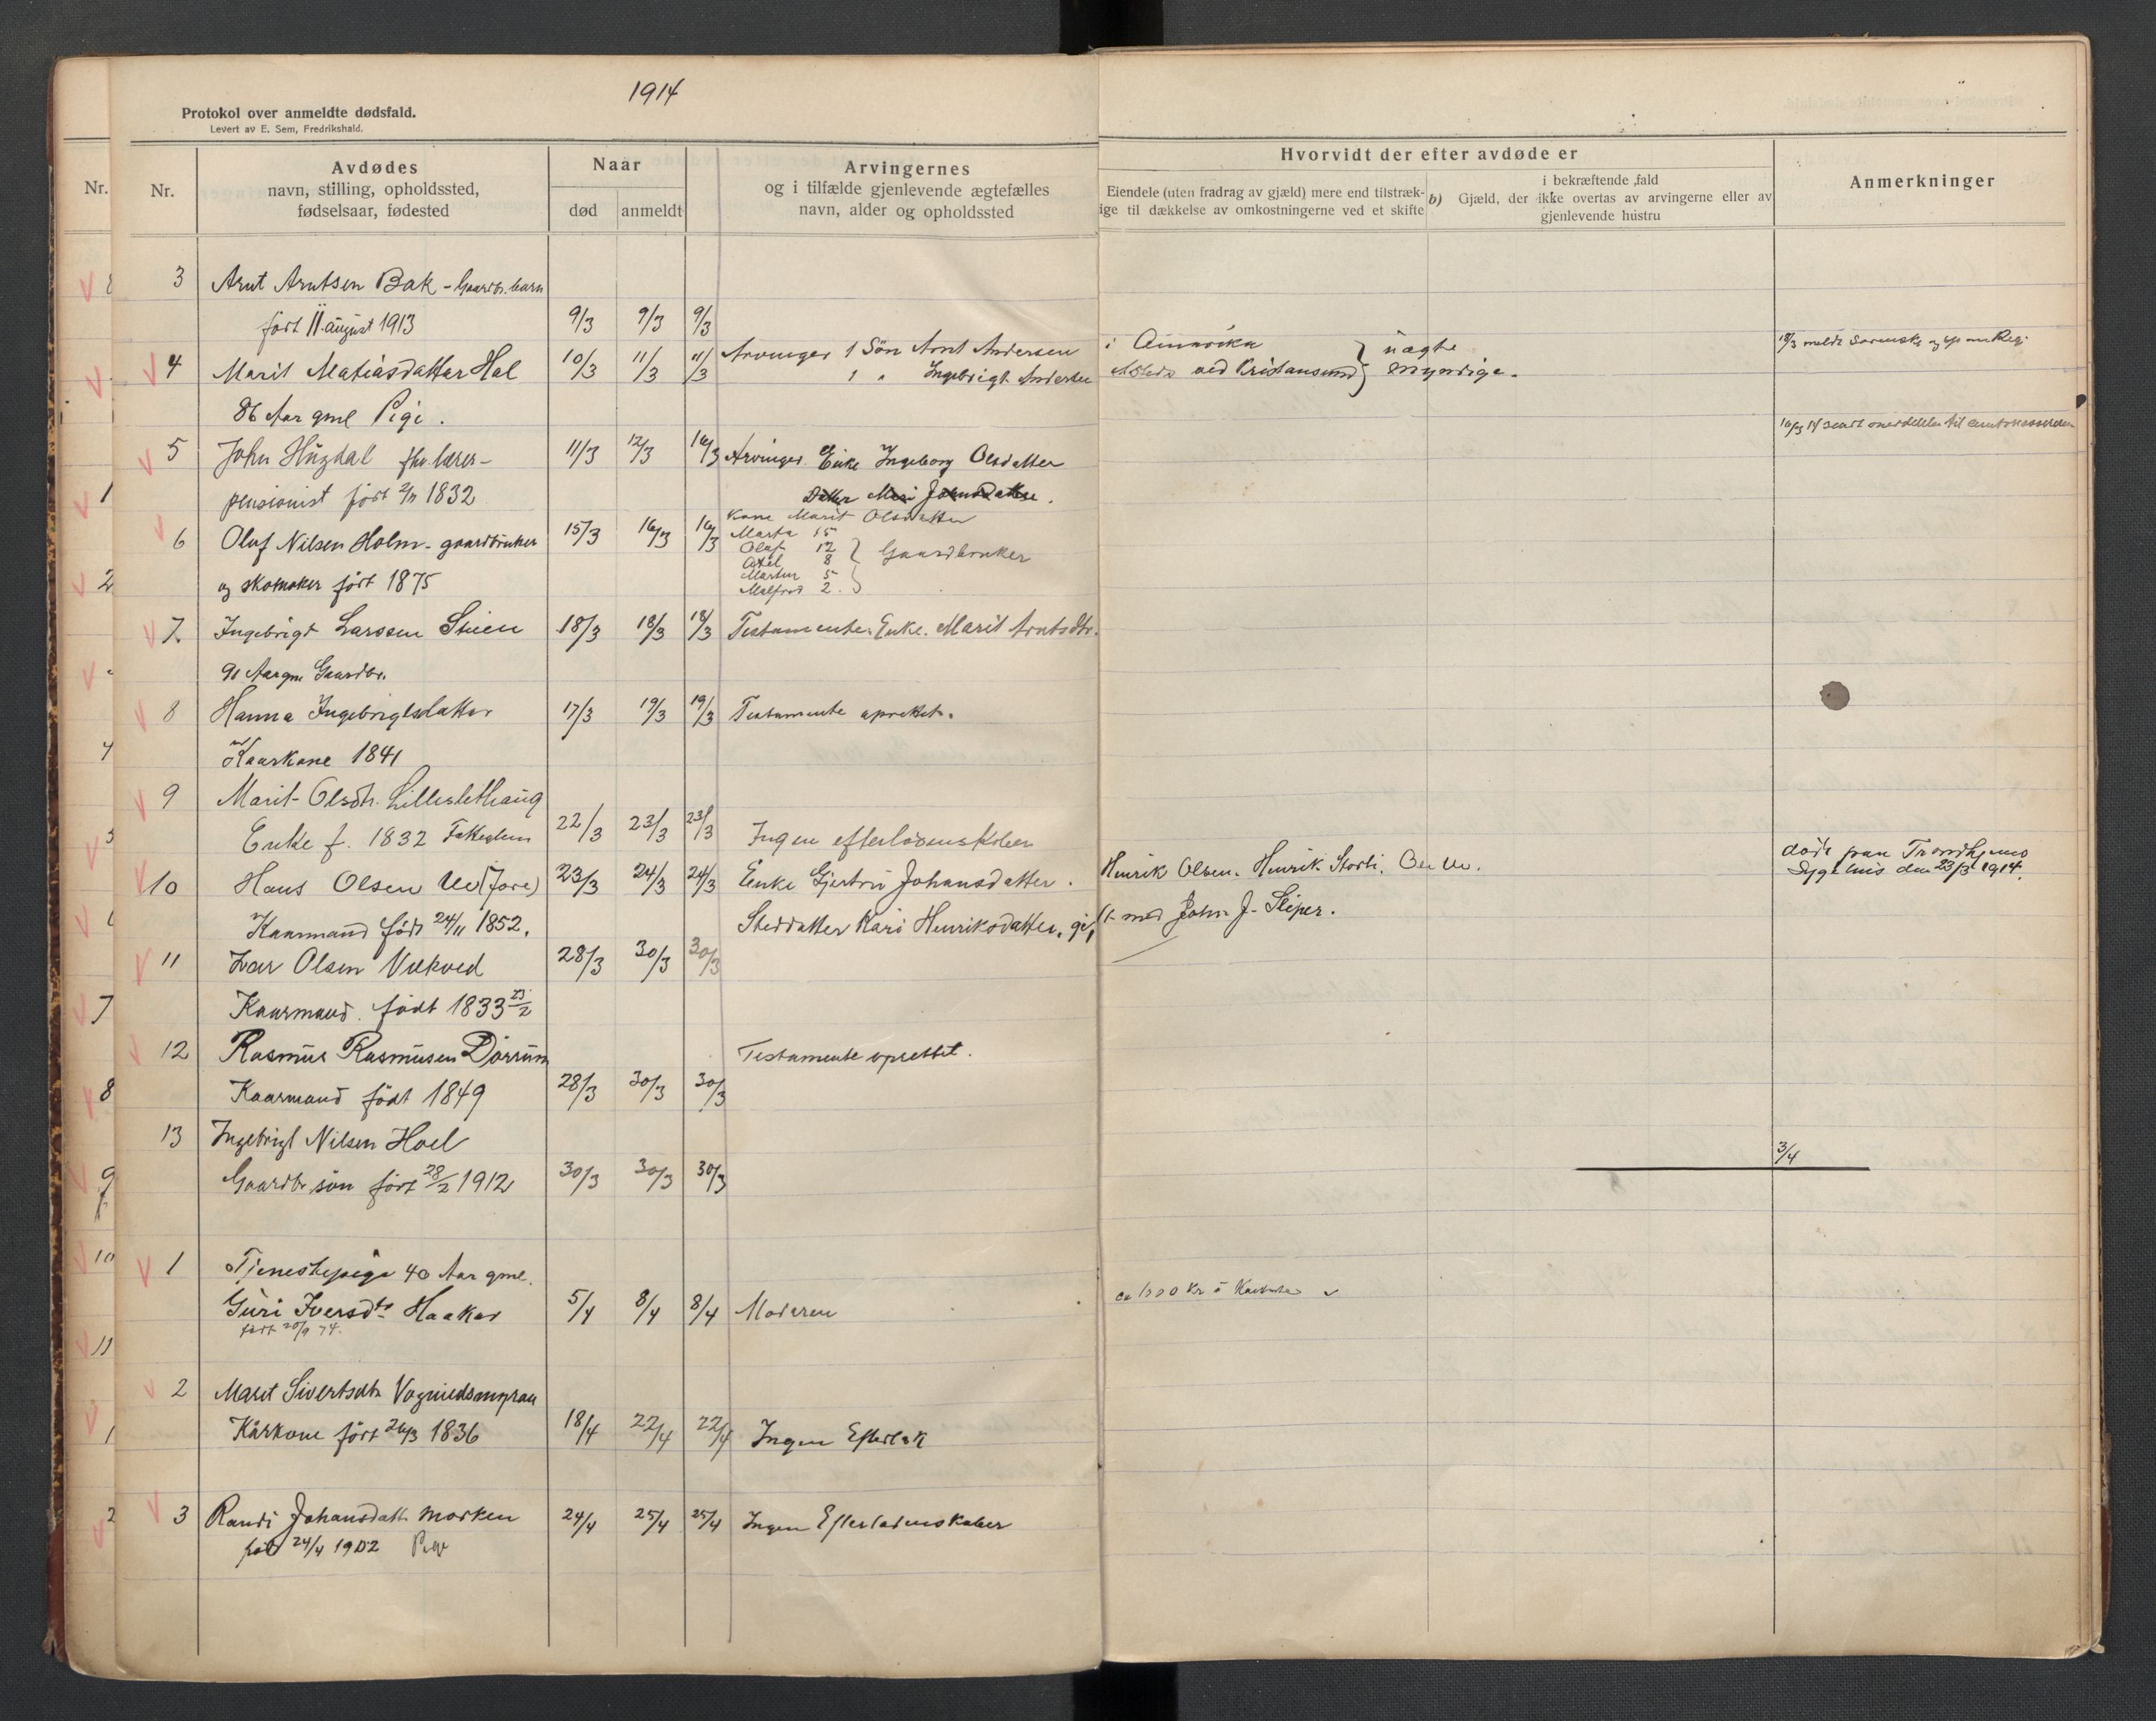 1914
Protokol over anmeldte dødsfald.
Levert av E. Sem, Fredrikshald.
Nr.
Nr.
Avdødes
navn, stilling, opholdssted,
fødselsaar, fødested
Naar
død
anmeldt
Arvingernes
og i tilfælde gjenlevende ægtefælles
navn, alder og opholdssted
Hvorvidt der efter avdøde er
Eiendele (uten fradrag av gjæld) mere end tilstræk-
ige til dækkelse av omkostningerne ved et skifte
i bekræftende fald
b) Gjæld, der ikke overtas av arvingerne eller av
gjenlevende hustru
Anmerkninger
3 Arnt Arntsen Bak - Gaardbr. barn
født 11 august 1913 9/3 9/3 9/3
4 Marit Matiasdatter Hol 10/3 11/3 11/3 Arvinger 1 Søn Arnt Andersen i Amerika
1 " Ingebrigt Andersen ved Kristiansund } myndige.
86 Aar gml Pige.
5 John Hugdal fhv. lærer- 11/3 12/3 16/3 Arvinger. Enke Ingeborg Olsdatter
pensionist født 2/7 1832
6 Oluf Nilsen Holm - gaardbruker 15/3 16/3 16/3 Kone Marit Olsdatter
Marta 15
Olaf 12
Axel 8 } Gaardbruker
Martin 5
Malfred 2.
og skomaker født 1875
7. Ingebrigt Larssen Stuen 18/3 18/3 18/3 Testamente. Enke. Marit Arntsdtr.
91 Aar gm Gaardbr.
8 Hanna Ingebrigtsdatter 17/3 19/3 19/3 Testamente oprettet.
Kaarkone 1841
9 Marit Olsdtr. Lilleslethaug
Enke f. 1832 Fattiglem 22/3 23/3 23/3 Ingen efterladenskaber
10 Hans Olsen Ue (Jore) 23/3 24/3 24/3 Enke Gjertru Johansdatter. Henrik Olsen. Henrik Storli. Ole Ue.
døde paa Trondhjems
Sygehus den 23/3 1914.
Kaarmand født 24/11 1852. Steddatter Kari Henriksdatter, gift med John J. Sliper.
11 Lar Olsen Vikved 28/3 30/3 30/3
Kaarmand. født 1833 23/2
12 Rasmus Rasmusen Dørrum Testamente oprettet.
Kaarmand født 1849 28/3 30/3 30/3
13 Ingebrigt Nilsen Hoel
3/4
Gaardbr søn født 28/2 1912 30/3 30/3 30/3
1 Tjenestepige 40 Aar gml.
Guri Iversdtr Haaker 5/4 8/4 8/4 Moderen
født 20/9 74.
2 Marit Sivertsdtr
Kårkone født 26/3 1836 18/4 22/4 22/4 Ingen Efterlak
3 Randi Johansdatt Morken 24/4 25/4 25/4 Ingen Efterladenskaber
født 24/4 1902